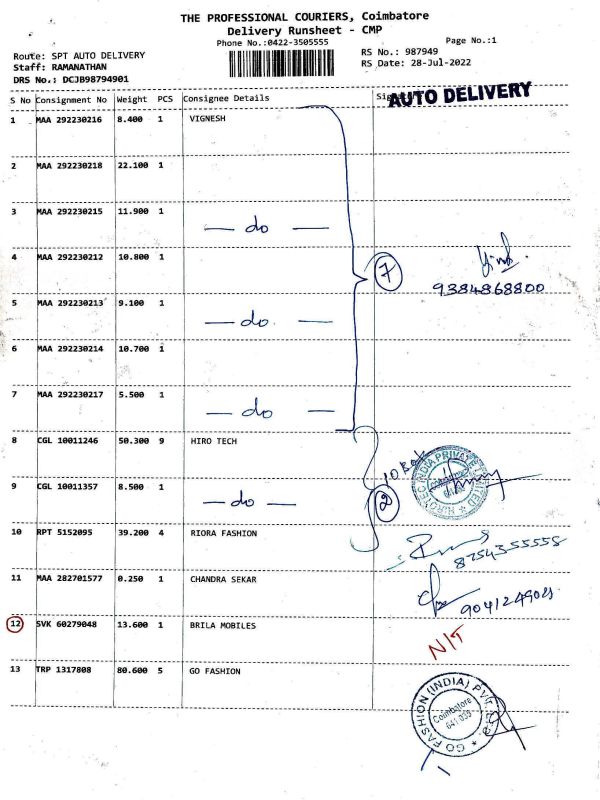 THE PROFESSIONAL COURIERS, Coimbatore
Delivery Runsheet - CMP
Phone No.:0422-3505555
Page No.:1
Route: SPT AUTO DELIVERY
RS No.: 987949
Staff: RAMANATHAN
RS Date: 28-Jul-2022
DRS No.: DCJB98794901
S No Consignment No Weight PCS Consignee Details
AUTO DELIVERY
1 MAA 292230216 8.400 1 VIGNESH
2 MAA 292230218 22.100 1
3 MAA 292230215 11.900 1
— do —
4 MAA 292230212 10.800 1
7
9384868800
5 MAA 292230213 9.100 1
— do. —
6 MAA 292230214 10.700 1
7 MAA 292230217 5.500 1
— do —
8 CGL 10011246 50.300 9 HIRO TECH
9 CGL 10011357 8.500 1
— do —
2
10 RPT 5152095 39.200 4 RIORA FASHION
8754355558
11 MAA 282701577 0.250 1 CHANDRA SEKAR
12 SVK 60279048 13.600 1 BRILA MOBILES
N/T
13 TRP 1317808 80.600 5 GO FASHION
GO FASHION (INDIA) PVT. LTD.
Coimbatore